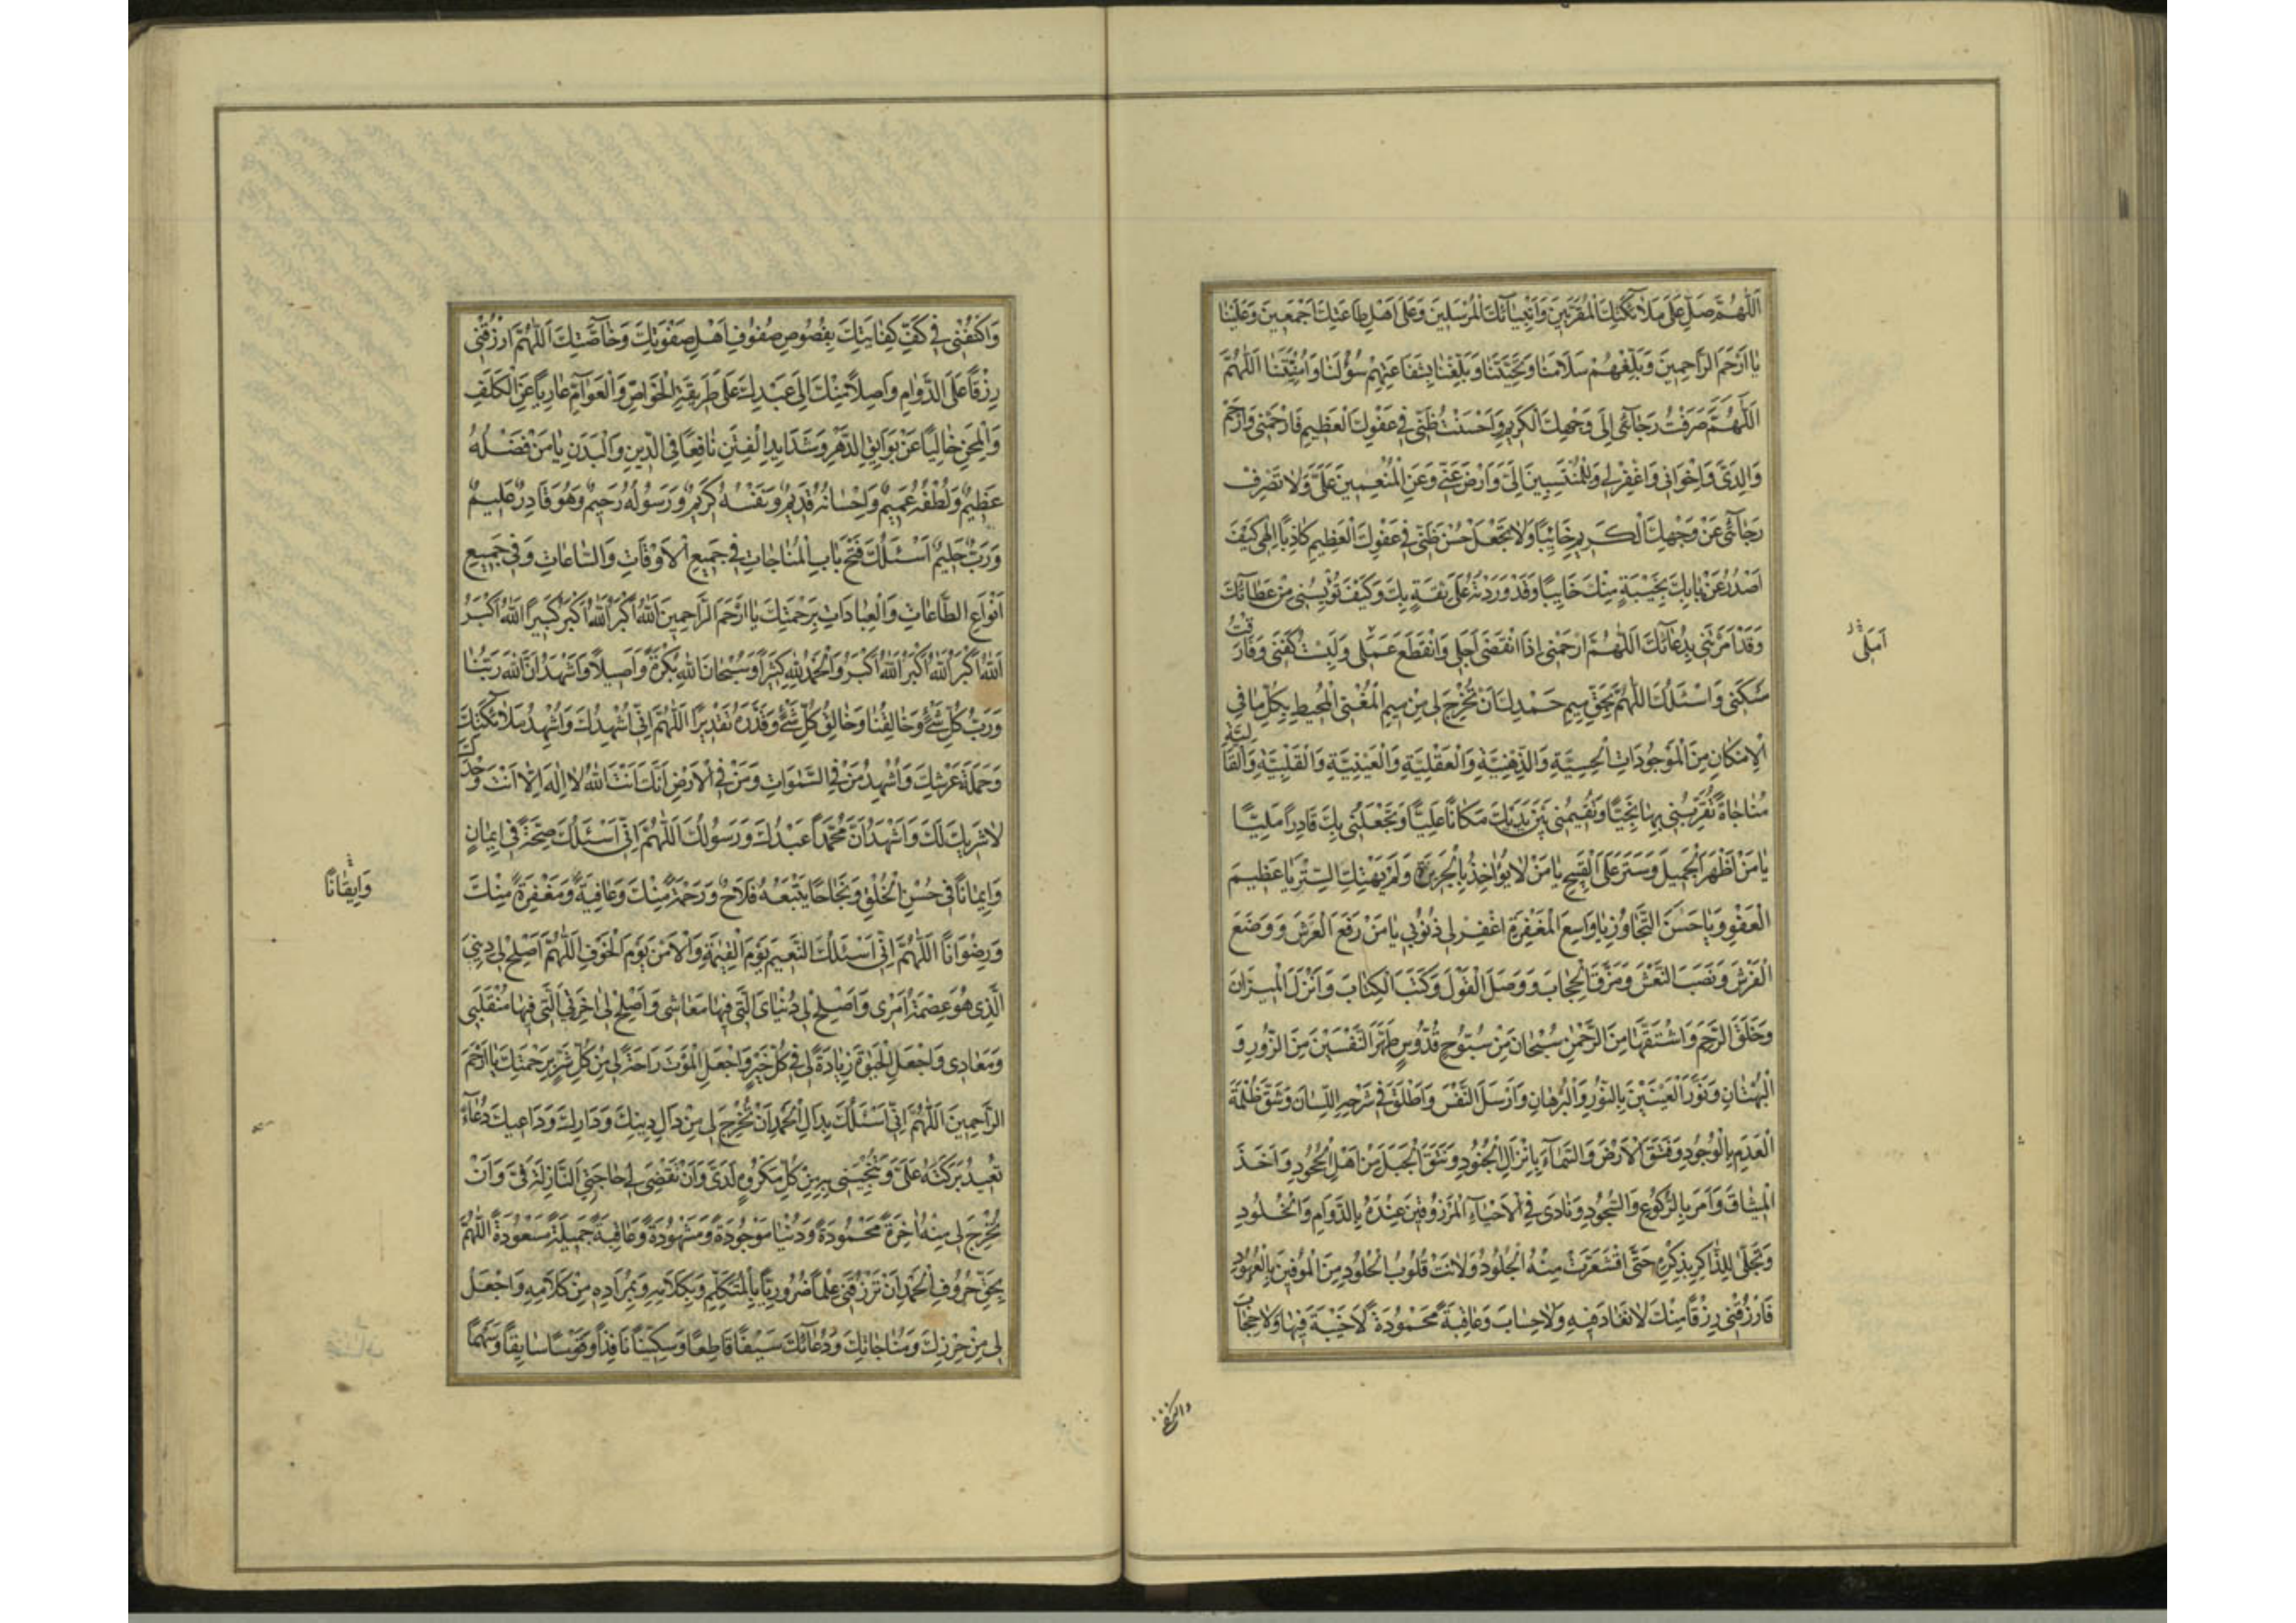 اَللّٰهُمَّ صَلِّ عَلٰى مَلَآئِكَتِكَ الْمُقَرَّبِينَ وَاَنْبِيَآئِكَ الْمُرْسَلِينَ وَعَلٰى اَهْلِ طَاعَتِكَ اَجْمَعِينَ وَعَلَيْنَا
يَا اَرْحَمَ الرَّاحِمِينَ وَبَلِّغْهُمْ سَلَامَنَا وَتَحِيَّتَنَا وَبَلِّغْنَا بِشَفَاعَتِهِمْ سُؤْلَنَا وَاُمْنِيَّتَنَا اَللّٰهُمَّ
اَللّٰهُمَّ صَرَفْتُ رَجَآئِى اِلٰى وَجْهِكَ الْكَرِيمِ وَاَحْسَنْتُ ظَنِّى فِى عَفْوِكَ الْعَظِيمِ فَارْحَمْنِى وَارْحَمْ
وَالِدَىَّ وَاِخْوَانِى وَاغْفِرْ لِى وَلِلْمُنْتَسِبِينَ اِلَىَّ وَارْضَ عَنِّى وَعَنِ الْمُنْعِمِينَ عَلَىَّ وَلَا تَصْرِفْ
رَجَآئِى عَنْ وَجْهِكَ الْكَرِيمِ خَائِبًا وَلَا تَجْعَلْ حُسْنَ ظَنِّى فِى عَفْوِكَ الْعَظِيمِ كَاذِبًا اِلٰهِى كَيْفَ
اَصْدُرُ عَنْ بَابِكَ بِخَيْبَةٍ مِنْكَ خَائِبًا وَقَدْ وَرَدْتُهُ عَلٰى ثِقَةٍ بِكَ وَكَيْفَ تُؤْيِسُنِى مِنْ عَطَآئِكَ
وَقَدْ اَمَرْتَنِى بِدُعَآئِكَ اَللّٰهُمَّ ارْحَمْنِى اِذَا انْقَضٰى اَجَلِى وَانْقَطَعَ عَمَلِى وَلَبِسْتُ كَفَنِى وَفَارَقْتُ
اَمَلِى
سَكَنِى وَاَسْئَلُكَ اللّٰهُمَّ بِحَقِّ مِيمِ حَمْدِكَ اَنْ تُخْرِجَ لِى مِنْ مِيمِ الْمُغْنِى الْمُحِيطِ بِكُلِّ مَا فِى
الْاِمْكَانِ مِنَ الْمَوْجُودَاتِ الْحِسِّيَّةِ وَالذِّهْنِيَّةِ وَالْعَقْلِيَّةِ وَالْعَيْنِيَّةِ وَالْقَلْبِيَّةِ وَالْقَالَبِيَّةِ
مُنَاجَاةً تُقَرِّبُنِى بِهَا نَجِيًّا وَتُقِيمُنِى بَيْنَ يَدَيْكَ مَكَانًا عَلِيًّا وَتَجْعَلُنِى بِكَ قَادِرًا مَلِيًّا
يَا مَنْ اَظْهَرَ الْجَمِيلَ وَسَتَرَ عَلَى الْقَبِيحِ يَا مَنْ لَا يُؤَاخِذُ بِالْجَرِيرَةِ وَلَمْ يَهْتِكِ السِّتْرَ يَا عَظِيمَ
الْعَفْوِ وَيَا حَسَنَ التَّجَاوُزِ يَا وَاسِعَ الْمَغْفِرَةِ اغْفِرْ لِى ذُنُوبِى يَا مَنْ رَفَعَ الْعَرْشَ وَوَضَعَ
الْفَرْشَ وَنَصَبَ النَّعْشَ وَمَزَّقَ الْحِجَابَ وَوَصَلَ الْقَوْلَ وَكَتَبَ الْكِتَابَ وَاَنْزَلَ الْمِيزَانَ
وَخَلَقَ الرَّحِمَ وَاشْتَقَّهَا مِنَ الرَّحْمٰنِ سُبْحَانَ مِنْ سُبُّوحٍ قُدُّوسٍ طَهَّرَ النَّفْسَيْنِ مِنَ الزُّورِ وَ
الْبُهْتَانِ وَنَوَّرَ الْعَيْنَيْنِ بِالنُّورِ وَالْبُرْهَانِ وَاَرْسَلَ النَّفْسَ وَاَطْلَقَ فِى شَرْحِهِ اللِّسَانَ وَشَقَّ ظُلْمَةَ
الْعَدَمِ بِالْوُجُودِ وَفَتَقَ الْاَرْضَ وَالسَّمَآءَ بِاِنْزَالِ الْجُنُودِ وَنَتَقَ الْجَبَلَ مِنْ اَهْلِ الْجُحُودِ وَاَخَذَ
الْمِيثَاقَ وَاَمَرَ بِالرُّكُوعِ وَالسُّجُودِ وَنَادٰى فِى الْاَحْيَآءِ الْمَرْزُوقِينَ عِنْدَهُ بِالدَّوَامِ وَالْخُلُودِ
وَتَجَلّٰى لِلذَّاكِرِ بِذِكْرِهِ حَتَّى اقْشَعَرَّتْ مِنْهُ الْجُلُودُ وَلَانَتْ قُلُوبُ الْخُلُودِ مِنَ الْمُوفِينَ بِالْعُهُودِ
فَارْزُقْنِى رِزْقًا مِنْكَ لَا نَفَادَ فِيهِ وَلَا حِسَابَ وَعَاقِبَةً مَحْمُودَةً لَا خَيْبَةَ فِيهَا وَلَا حِجَابَ
وَاكْنُفْنِى
وَاكْنُفْنِى فِى كَنَفِ كِفَايَتِكَ بِفُصُوصِ صُفُوفِ اَهْلِ صَفْوَتِكَ وَخَاصَّتِكَ اَللّٰهُمَّ ارْزُقْنِى
رِزْقًا عَلَى الدَّوَامِ وَاصِلًا مِنْكَ اِلٰى عَبْدِكَ عَلٰى طَرِيقَةِ الْخَوَاصِّ وَالْعَوَآمِّ عَارِيًا عَنِ الْكَلَفِ
وَالْمِحَنِ خَالِيًا عَنْ بَوَايِقِ الدَّهْرِ وَشَدَايِدِ الْفِتَنِ نَافِعًا فِى الدِّينِ وَالْبَدَنِ يَا مَنْ فَضْلُهُ
عَظِيمٌ وَلُطْفُهُ عَمِيمٌ وَاِحْسَانُهُ قَدِيمٌ وَنَفْسُهُ كَرِيمٌ وَرَسُولُهُ رَحِيمٌ وَهُوَ قَادِرٌ عَلِيمٌ
وَرَبٌّ حَلِيمٌ اَسْئَلُكَ فَتْحَ بَابِ الْمُنَاجَاتِ فِى جَمِيعِ الْاَوْقَاتِ وَالسَّاعَاتِ وَفِى جَمِيعِ
اَنْوَاعِ الطَّاعَاتِ وَالْعِبَادَاتِ بِرَحْمَتِكَ يَا اَرْحَمَ الرَّاحِمِينَ اَللّٰهُ اَكْبَرُ اَللّٰهُ اَكْبَرُ كَبِيرًا اَللّٰهُ اَكْبَرُ
اَللّٰهُ اَكْبَرُ اَللّٰهُ اَكْبَرُ اَللّٰهُ اَكْبَرُ وَالْحَمْدُ لِلّٰهِ كَثِيرًا وَسُبْحَانَ اللّٰهِ بُكْرَةً وَاَصِيلًا وَاَشْهَدُ اَنَّ اللّٰهَ رَبُّنَا
وَرَبُّ كُلِّ شَىْءٍ وَخَالِقُنَا وَخَالِقُ كُلِّ شَىْءٍ وَقَدَّرَهُ تَقْدِيرًا اَللّٰهُمَّ اِنِّى اُشْهِدُكَ وَاُشْهِدُ مَلَآئِكَتَكَ
وَحَمَلَةَ عَرْشِكَ وَاُشْهِدُ مَنْ فِى السَّمٰوَاتِ وَمَنْ فِى الْاَرْضِ اَنَّكَ اَنْتَ اللّٰهُ لَا اِلٰهَ اِلَّا اَنْتَ وَحْدَكَ
لَا شَرِيكَ لَكَ وَاَشْهَدُ اَنَّ مُحَمَّدًا عَبْدُكَ وَرَسُولُكَ اَللّٰهُمَّ اِنِّى اَسْئَلُكَ صِحَّةً فِى اِيمَانٍ
وَاِيمَانًا فِى حُسْنِ الْخُلُقِ وَنَجَاحًا يَتْبَعُهُ فَلَاحٌ وَرَحْمَةً مِنْكَ وَعَافِيَةً وَمَغْفِرَةً مِنْكَ
وَاِيقَانًا
وَرِضْوَانًا اَللّٰهُمَّ اِنِّى اَسْئَلُكَ النَّعِيمَ يَوْمَ الْقِيٰمَةِ وَالْاَمْنَ يَوْمَ الْخَوْفِ اَللّٰهُمَّ اَصْلِحْ لِى دِينِىَ
الَّذِى هُوَ عِصْمَةُ اَمْرِى وَاَصْلِحْ لِى دُنْيَاىَ الَّتِى فِيهَا مَعَاشِى وَاَصْلِحْ لِى اٰخِرَتِىَ الَّتِى فِيهَا مُنْقَلَبِى
وَمَعَادِى وَاجْعَلِ الْحَيٰوةَ زِيَادَةً لِى فِى كُلِّ خَيْرٍ وَاجْعَلِ الْمَوْتَ رَاحَةً لِى مِنْ كُلِّ شَرٍّ بِرَحْمَتِكَ يَا اَرْحَمَ
الرَّاحِمِينَ اَللّٰهُمَّ اِنِّى اَسْئَلُكَ بِدَالِ الْحَمْدِ اَنْ تُخْرِجَ لِى مِنْ دَالِ دِينِكَ وَدَارِكَ وَدَاعِيكَ دُعَآءً
تُعِيدُ بَرَكَتَهُ عَلَىَّ وَتُنْجِيَنِى بِهِ مِنْ كُلِّ مَكْرُوهٍ لَدَىَّ وَاَنْ تَقْضِىَ لِى حَاجَتِىَ النَّازِلَةَ فِىَّ وَاَنْ
تُخْرِجَ لِى مِنْهُ اٰخِرَةً مَحْمُودَةً وَدُنْيَا مَوْجُودَةً وَمَشْهُودَةً وَعَاقِبَةً جَمِيلَةً مَسْعُودَةً اَللّٰهُمَّ
بِحَقِّ حُرُوفِ الْحَمْدِ اَنْ تَرْزُقَنِى عِلْمًا ضَرُورِيًّا بِالْمُتَكَلِّمِ وَبِكَلَامِهِ وَبِمُرَادِهِ مِنْ كَلَامِهِ وَاجْعَلْ
لِى مِنْ حِرْزِكَ وَمُنَاجَاتِكَ وَدُعَآئِكَ سَيْفًا قَاطِعًا وَسِكِّينًا نَافِذًا وَفَرَسًا سَابِقًا وَسَهْمًا